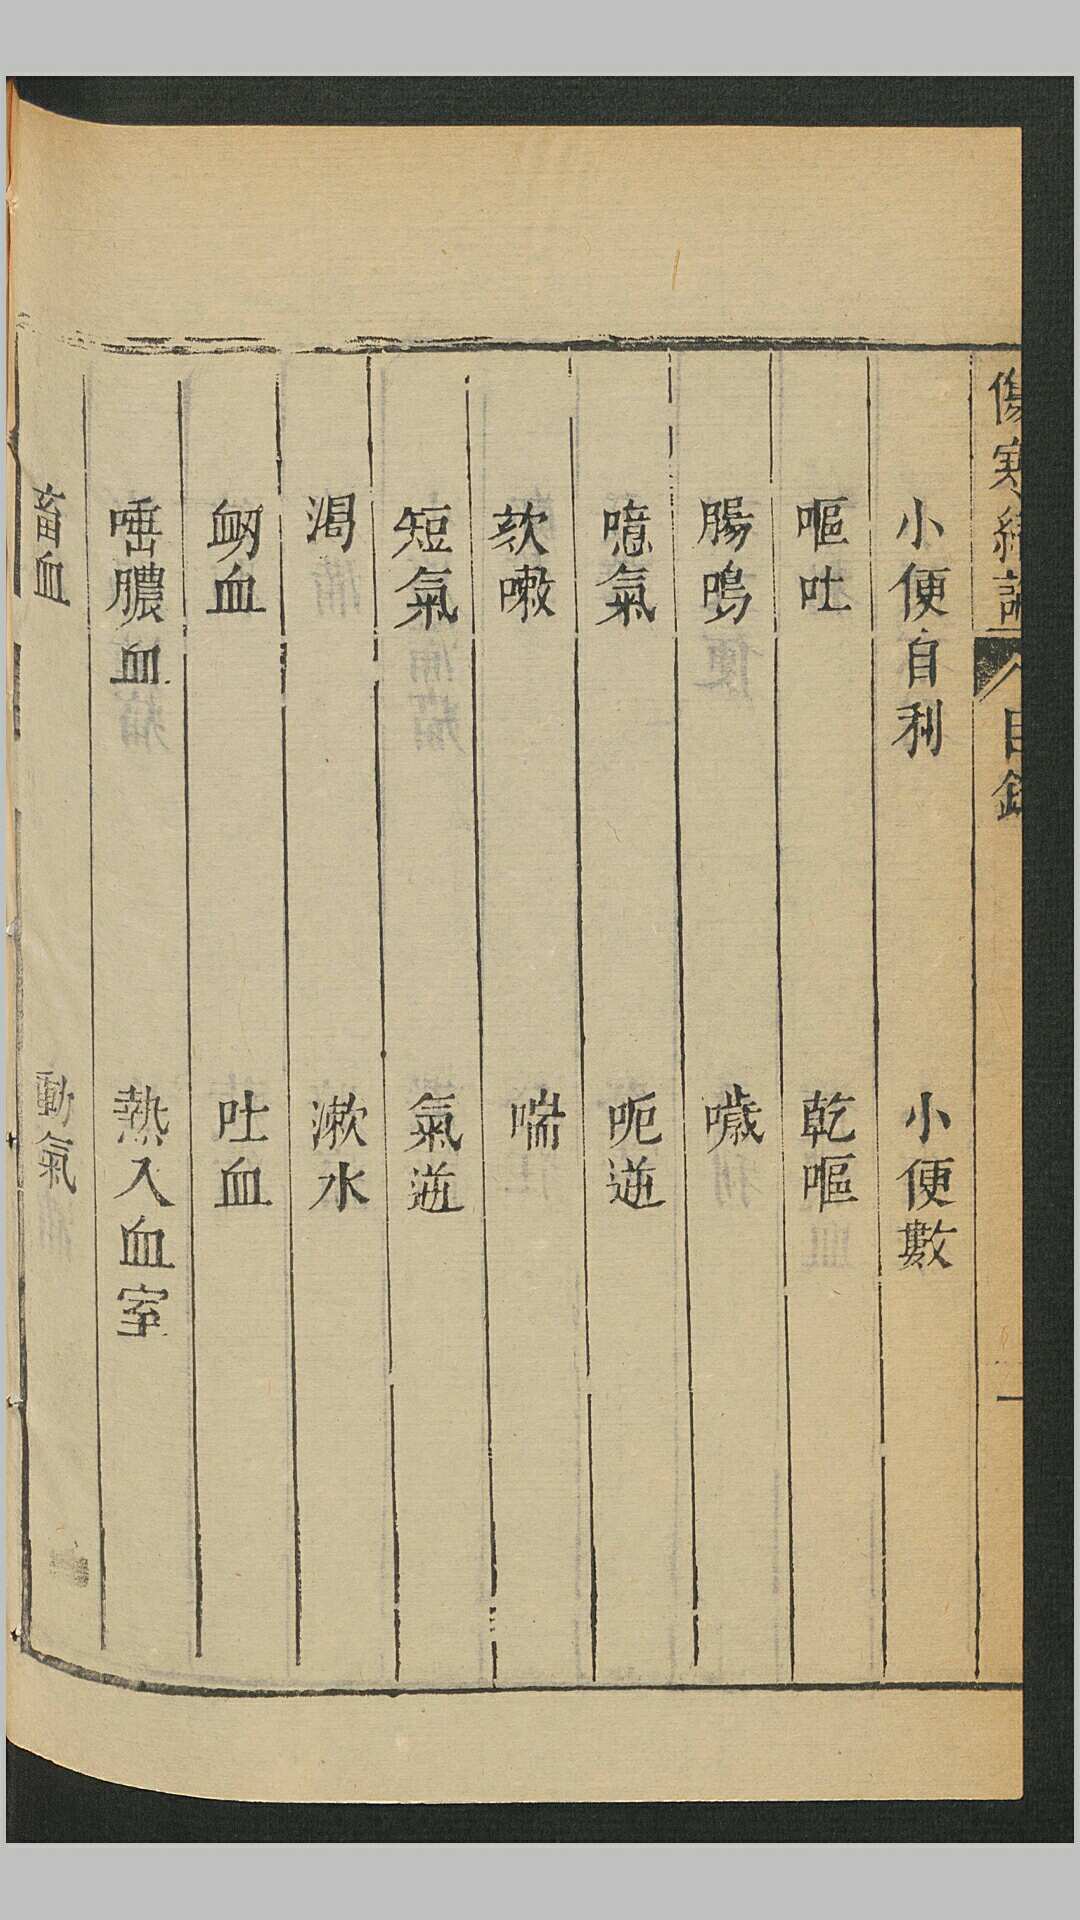 傷寒緒論 目錄 一
小便自利 小便數
嘔吐 乾嘔
腸鳴 噦
噫氣 呃逆
欬嗽 喘
短氣 氣逆
渴 漱水
衂血 吐血
唾膿血 熱入血室
畜血 動氣